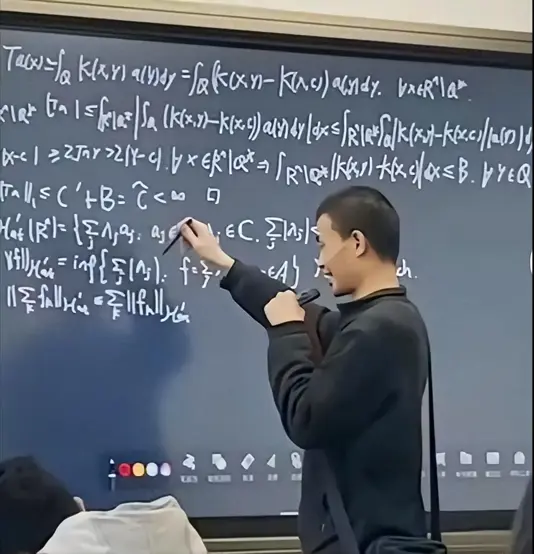 Ta(x) = ∫_Q K(x,y) a(y)dy = ∫_Q (K(x,y) − K(x,c)) a(y)dy. ∀x∈R^n\Q*.
R^n\Q* |Ta| ≤ ∫_{R^n\Q*} |∫_Q (K(x,y)−K(x,c)) a(y)dy| dx ≤ ∫_{R^n\Q*} ∫_Q |K(x,y)−K(x,c)| |a(y)| d
|x−c| ≥ 2√n r > 2|y−c|. ∀x∈R^n\Q* ⇒ ∫_{R^n\Q*} |K(x,y)−K(x,c)| dx ≤ B. ∀y∈Q
‖Ta‖₁ ≤ C' + B = C̃ < ∞ □
H¹_at(R^n) = {Σ_j λ_j a_j. a_j ∈ ∈ C. Σ_j |λ_j| <
‖f‖_{H¹_at} = inf{Σ_j |λ_j|. f = Σ_j ∈ A} ch.
‖Σ_k f_k‖_{H¹_at} ≤ Σ_k ‖f_k‖_{H¹_at}